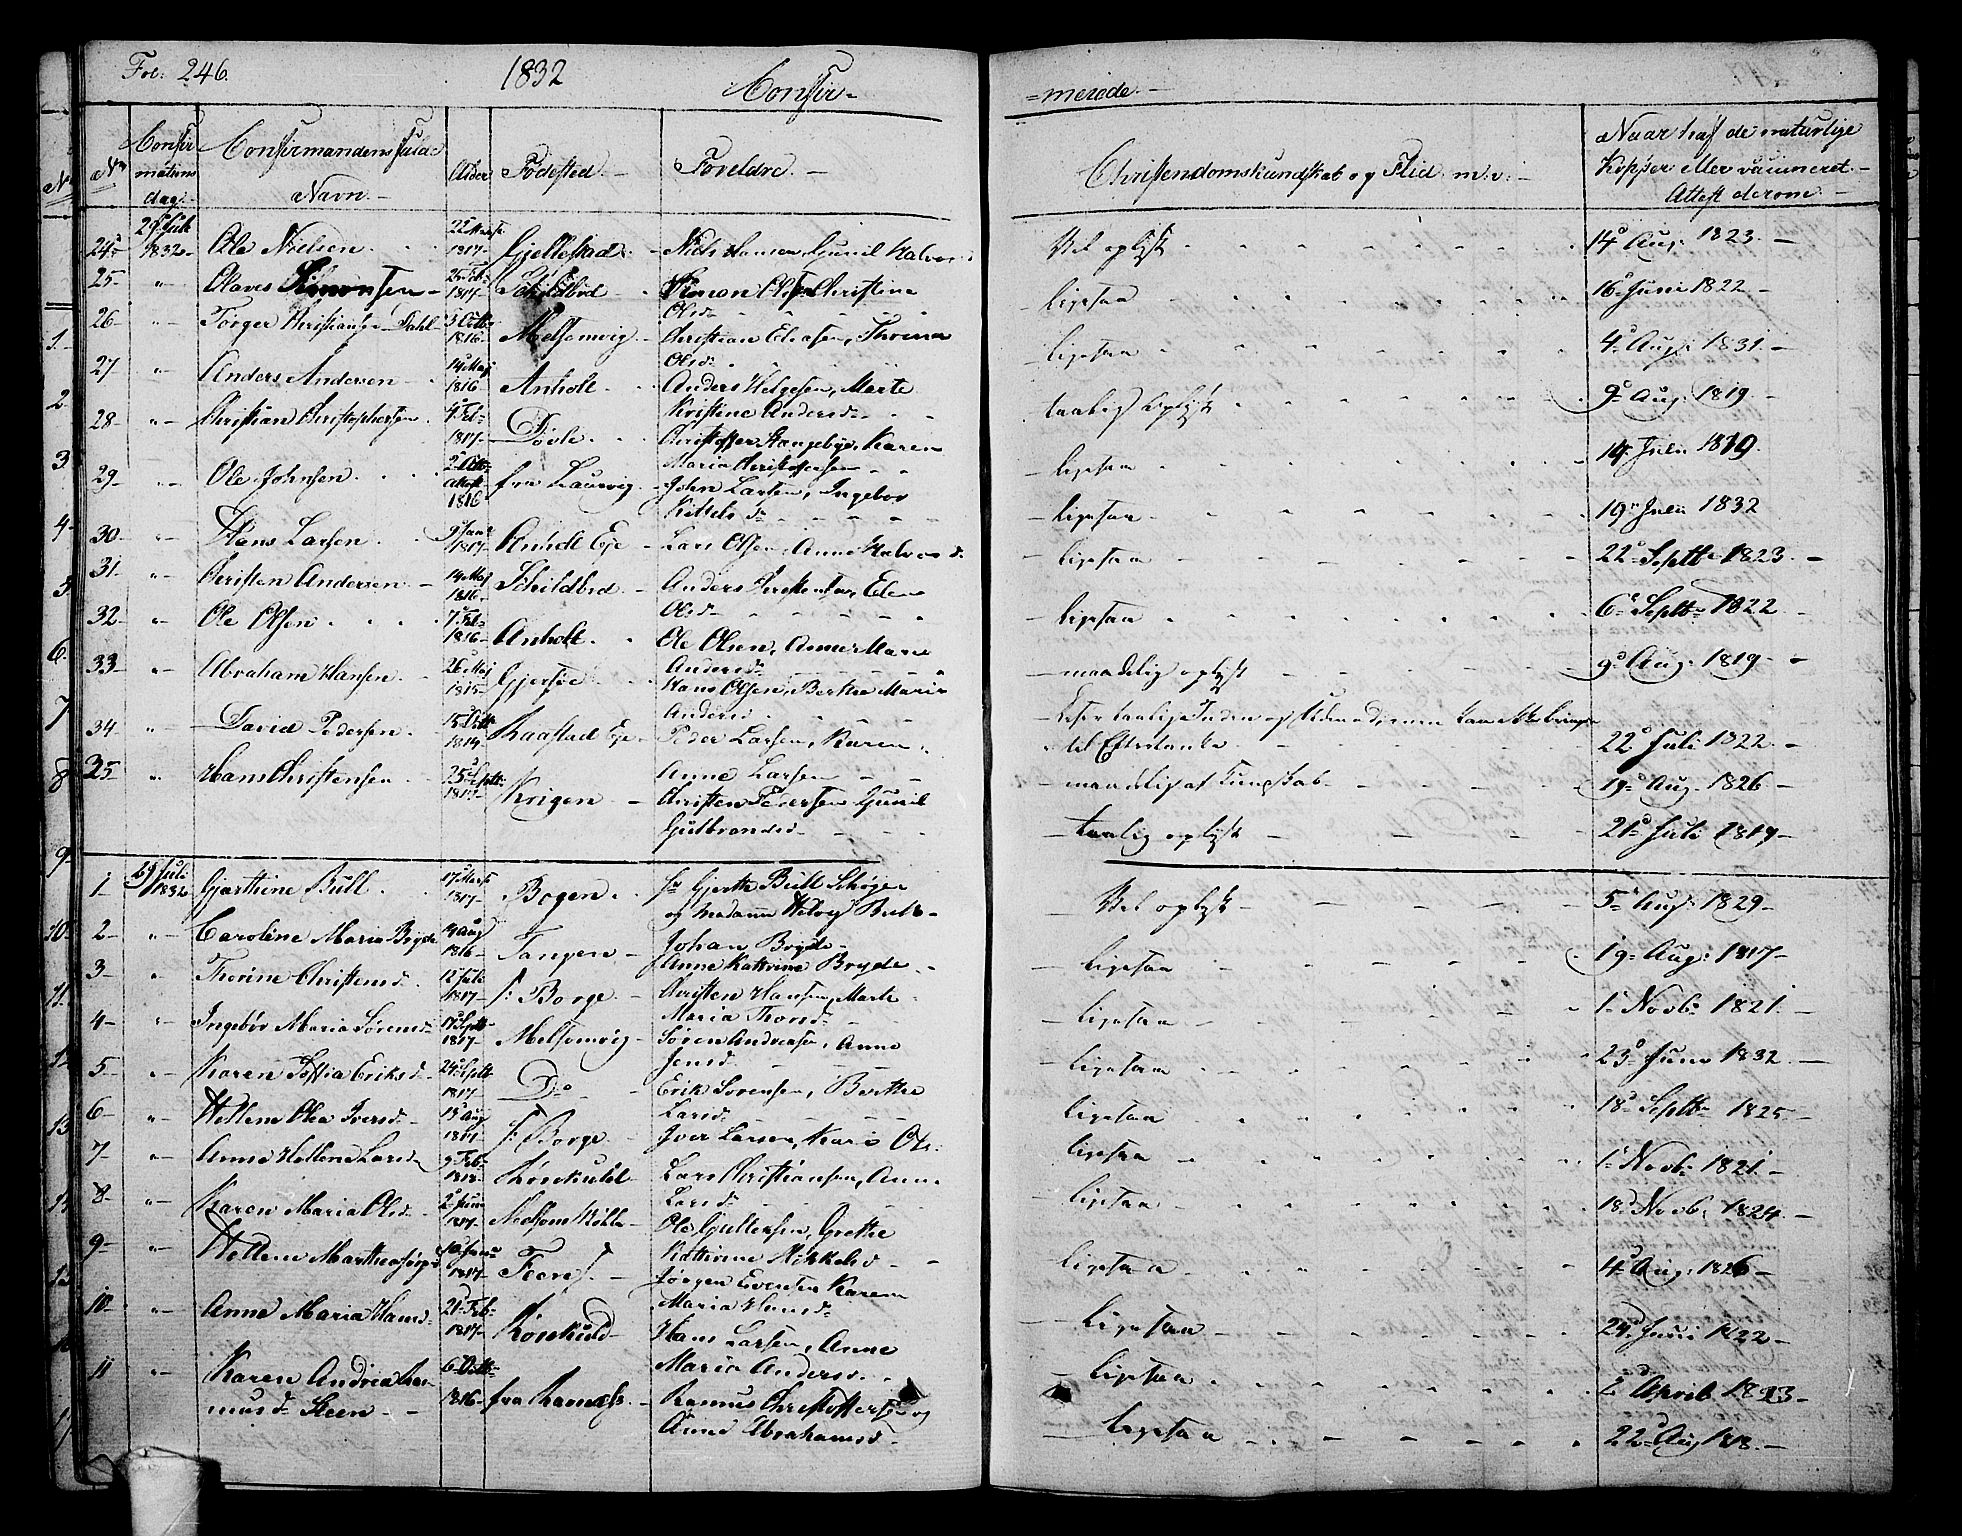 Fol: 246.
1832
Confir-
=merede.-
Confir
mations
dag.-
Confirmandens fulde
Navn.-
Alder
Födested.-
Foreldre.-
Christendomskundskab og Flid. m:v:-
Naar haft de naturlige
Kopper eller vaccineret.-
Attest derom.-
29 Juli 22 Marts
24- 1832- Ole Nielsen. 1817- Gjellestad.- Niels Hansen, Gunil Halvors
Vel oplyst 14 Aug: 1823.-
25- "- Olaves Simonsen- 25 Feb- 1817- Schildbred Simon Olsen Christina
Olsd-
ligesaa 16 Juni 1822-
26- "- Torger Christiansen Dahl 3 Octb- 1816- Melsomvig.- Christian Eliasen, Thorina
Olsd-
ligesaa 4 Aug: 1831-
27 "- Anders Andersen- 14 Maj 1816- Anholt. Anders Helgesen, Marte
Kristine Andersd-
taalig oplyst 9 Aug: 1819.-
28- "- Christian Christophersen 4 Feb- 1817- Dövle. Christoffer Stangebye, Karen
Maria Christoffersen
ligesaa 14 Juli 1819
29- "- Ole Johnsen 1816 fra Laurvig.- John Larsen, Ingebor
Kittelsd-
ligesaa- 19 Juli 1832
30- "- Hans Larsen. 9 Janu 1817- Anholt Eje- Lars Olsen, Anne Halvorsd.
ligesaa 22 Septbr 1823.-
31- "- Christen Andersen- 14 Maj 1816- Schildbred- Anders Christensen, Elen
Olsd-
ligesaa 6 Septbr 1822
32- "- Ole Olsen 7 Feb- 1816- Anholt. Ole Olsen, Anne Marie
Andersd-
maadelig oplyst 9 Aug: 1819-
33- "- Abraham Hansen. 26 Maj 1815- Gjersöe Hans Olsen, Berthe Maria
Andersd.
til Eftertanke 22 Juli 1822.-
34- "- David Pedersen. 1814- Raastad Eje- Peder Larsen, Karen
Anne Larsen
maadelig af Kundskab- 19 Aug. 1826-
35- "- Hans Christensen 25 Septb- 1817- Krigen- Christen Pedersen Gunil
Gulbrandsd-
taalig oplyst 21 Juli 1819-
29 Juli
1- 1832 Gjerthine Bull. 17 Marts 1817- Bogen. Gjerth Bull Schöger
og Madame Helvig Bull-
Vel oplyst- 5 Aug: 1829-
2- "- Caroline Maria Bryde 14 Aug 1816- Tangen- Johan Bryde-
Anne Kathrine Bryde
ligesaa 19 Aug: 1817-
3- " Thorine Christensd. 12 Juli 1817- f: Borge.- Christen Hansen, Marte
Maria Thorsd-
ligesaa 1 Novb: 1821.-
4- "- Ingebör Maria Sörensd- 17 Septb- 1817- Melsomvig- Sören Andersen, Anne
Jensd-
ligesaa 23 Juni 1832.-
5- "- Karen Sofia Eriksd- 24 Septb 1817- Do Erik Sörensen, Berthe
Larsd-
ligesaa 18 Septbr 1825.
6- "- Hellene Olea Iversd- 15 Aug 1817- f: Borge.- Iver Larsen, Kari Ols-
ligesaa 1 Novb: 1821.-
7- "- Anne Hellene Larsd- 9 Feb- 1818- Röskuld Lars Christiansen, Anne
Larsd-
ligesaa 18 Novb: 1824.-
8- "- Karen Maria Olsd- 2 Juni 1817- Melsom Mölle- Ole Gullersen, Grethe
Kathrine Mikkelsd-
ligesaa 4 Aug: 1826-
9- "- Hellene Marthea Jörgsd 1817- Feen Jörgen Evensen Karen
Maria Hansd-
ligesaa 24 Juni 1822-
10- "- Anne Maria Hansd- 21 Feb- 1817- Röskuld- Hans Larsen, Anne
Maria Andersd.
ligesaa 2 April 1823-
11 "- Karen Andrea Ras- 6 Octb- 1816- fra Ramnæs.- Rasmus Christoffersen og
musd- Steen- Anne Abrahamsd.-
ligesaa 22 Aug 1818.-